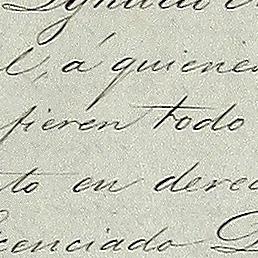 Ignacio
l, á quienes
fieren todo
to en derec
licenciado D